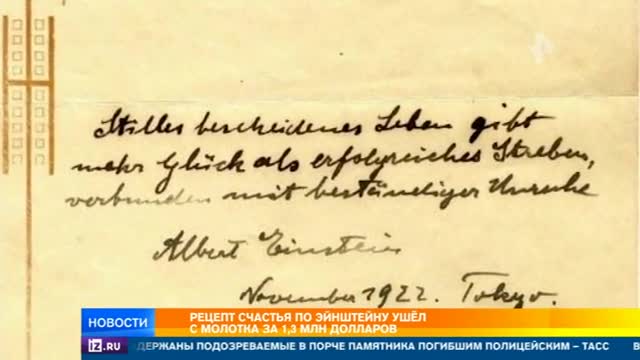 Stilles bescheidenes Leben gibt
mehr Glück als erfolgreiches Streben,
verbunden mit beständiger Unruhe
Albert Einstein
November 1922. Tokyo.
НОВОСТИ
РЕЦЕПТ СЧАСТЬЯ ПО ЭЙНШТЕЙНУ УШЁЛ
С МОЛОТКА ЗА 1,3 МЛН ДОЛЛАРОВ
IZ.RU
ДЕРЖАНЫ ПОДОЗРЕВАЕМЫЕ В ПОРЧЕ ПАМЯТНИКА ПОГИБШИМ ПОЛИЦЕЙСКИМ – ТАСС